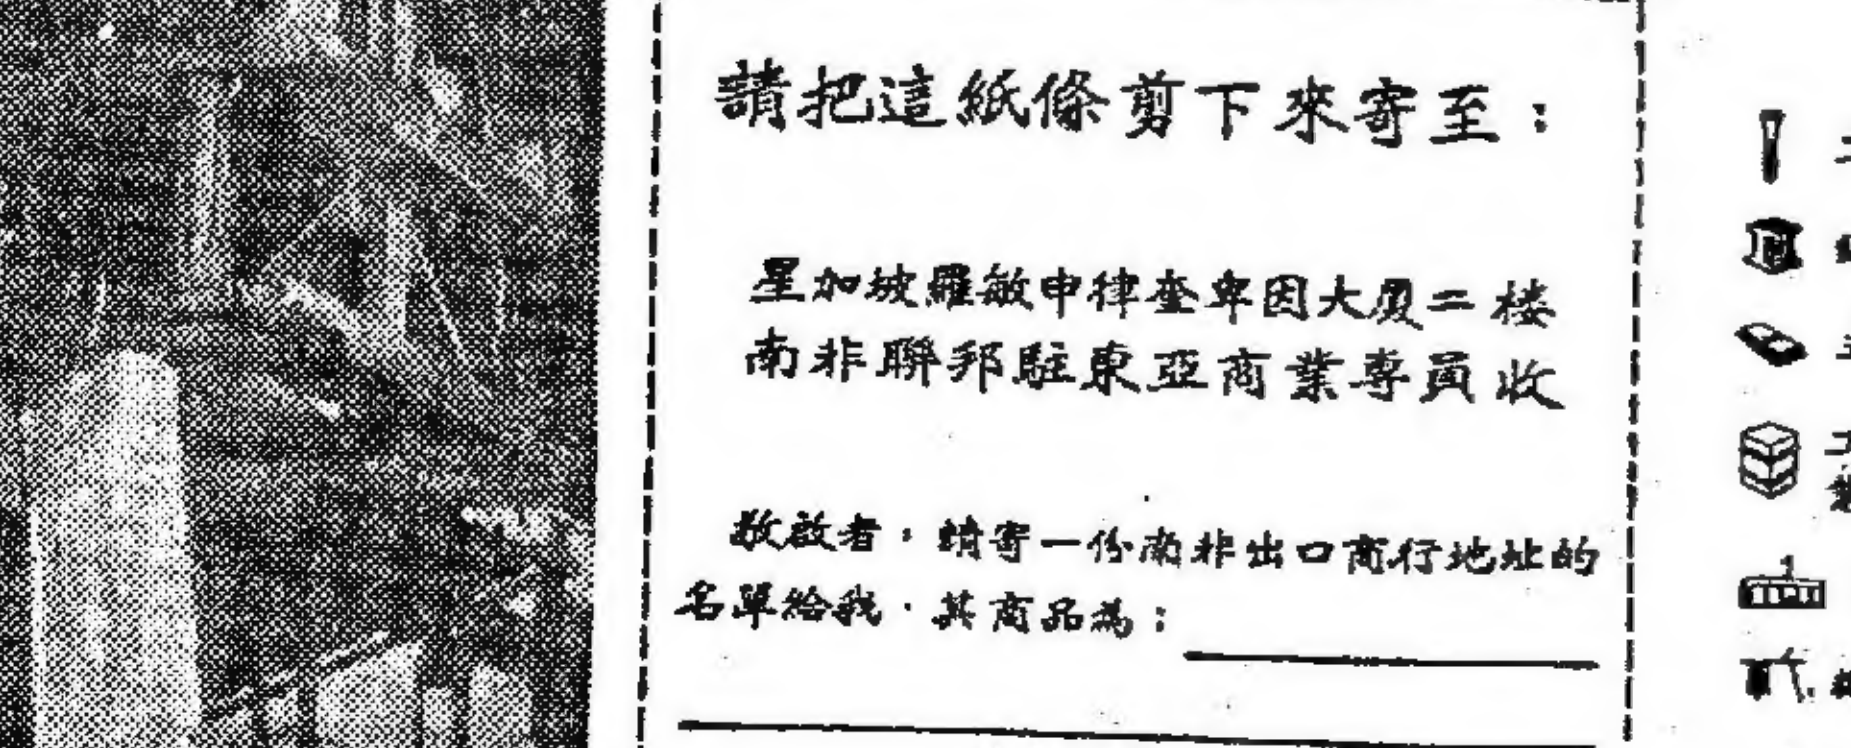 請把這紙條剪下來寄至：
星加坡羅敏申律奎卑因大厦二楼
南非聯邦駐東亞商業專員收
敬啟者，請寄一份南非出口商行地址的
名單給我．其商品為：